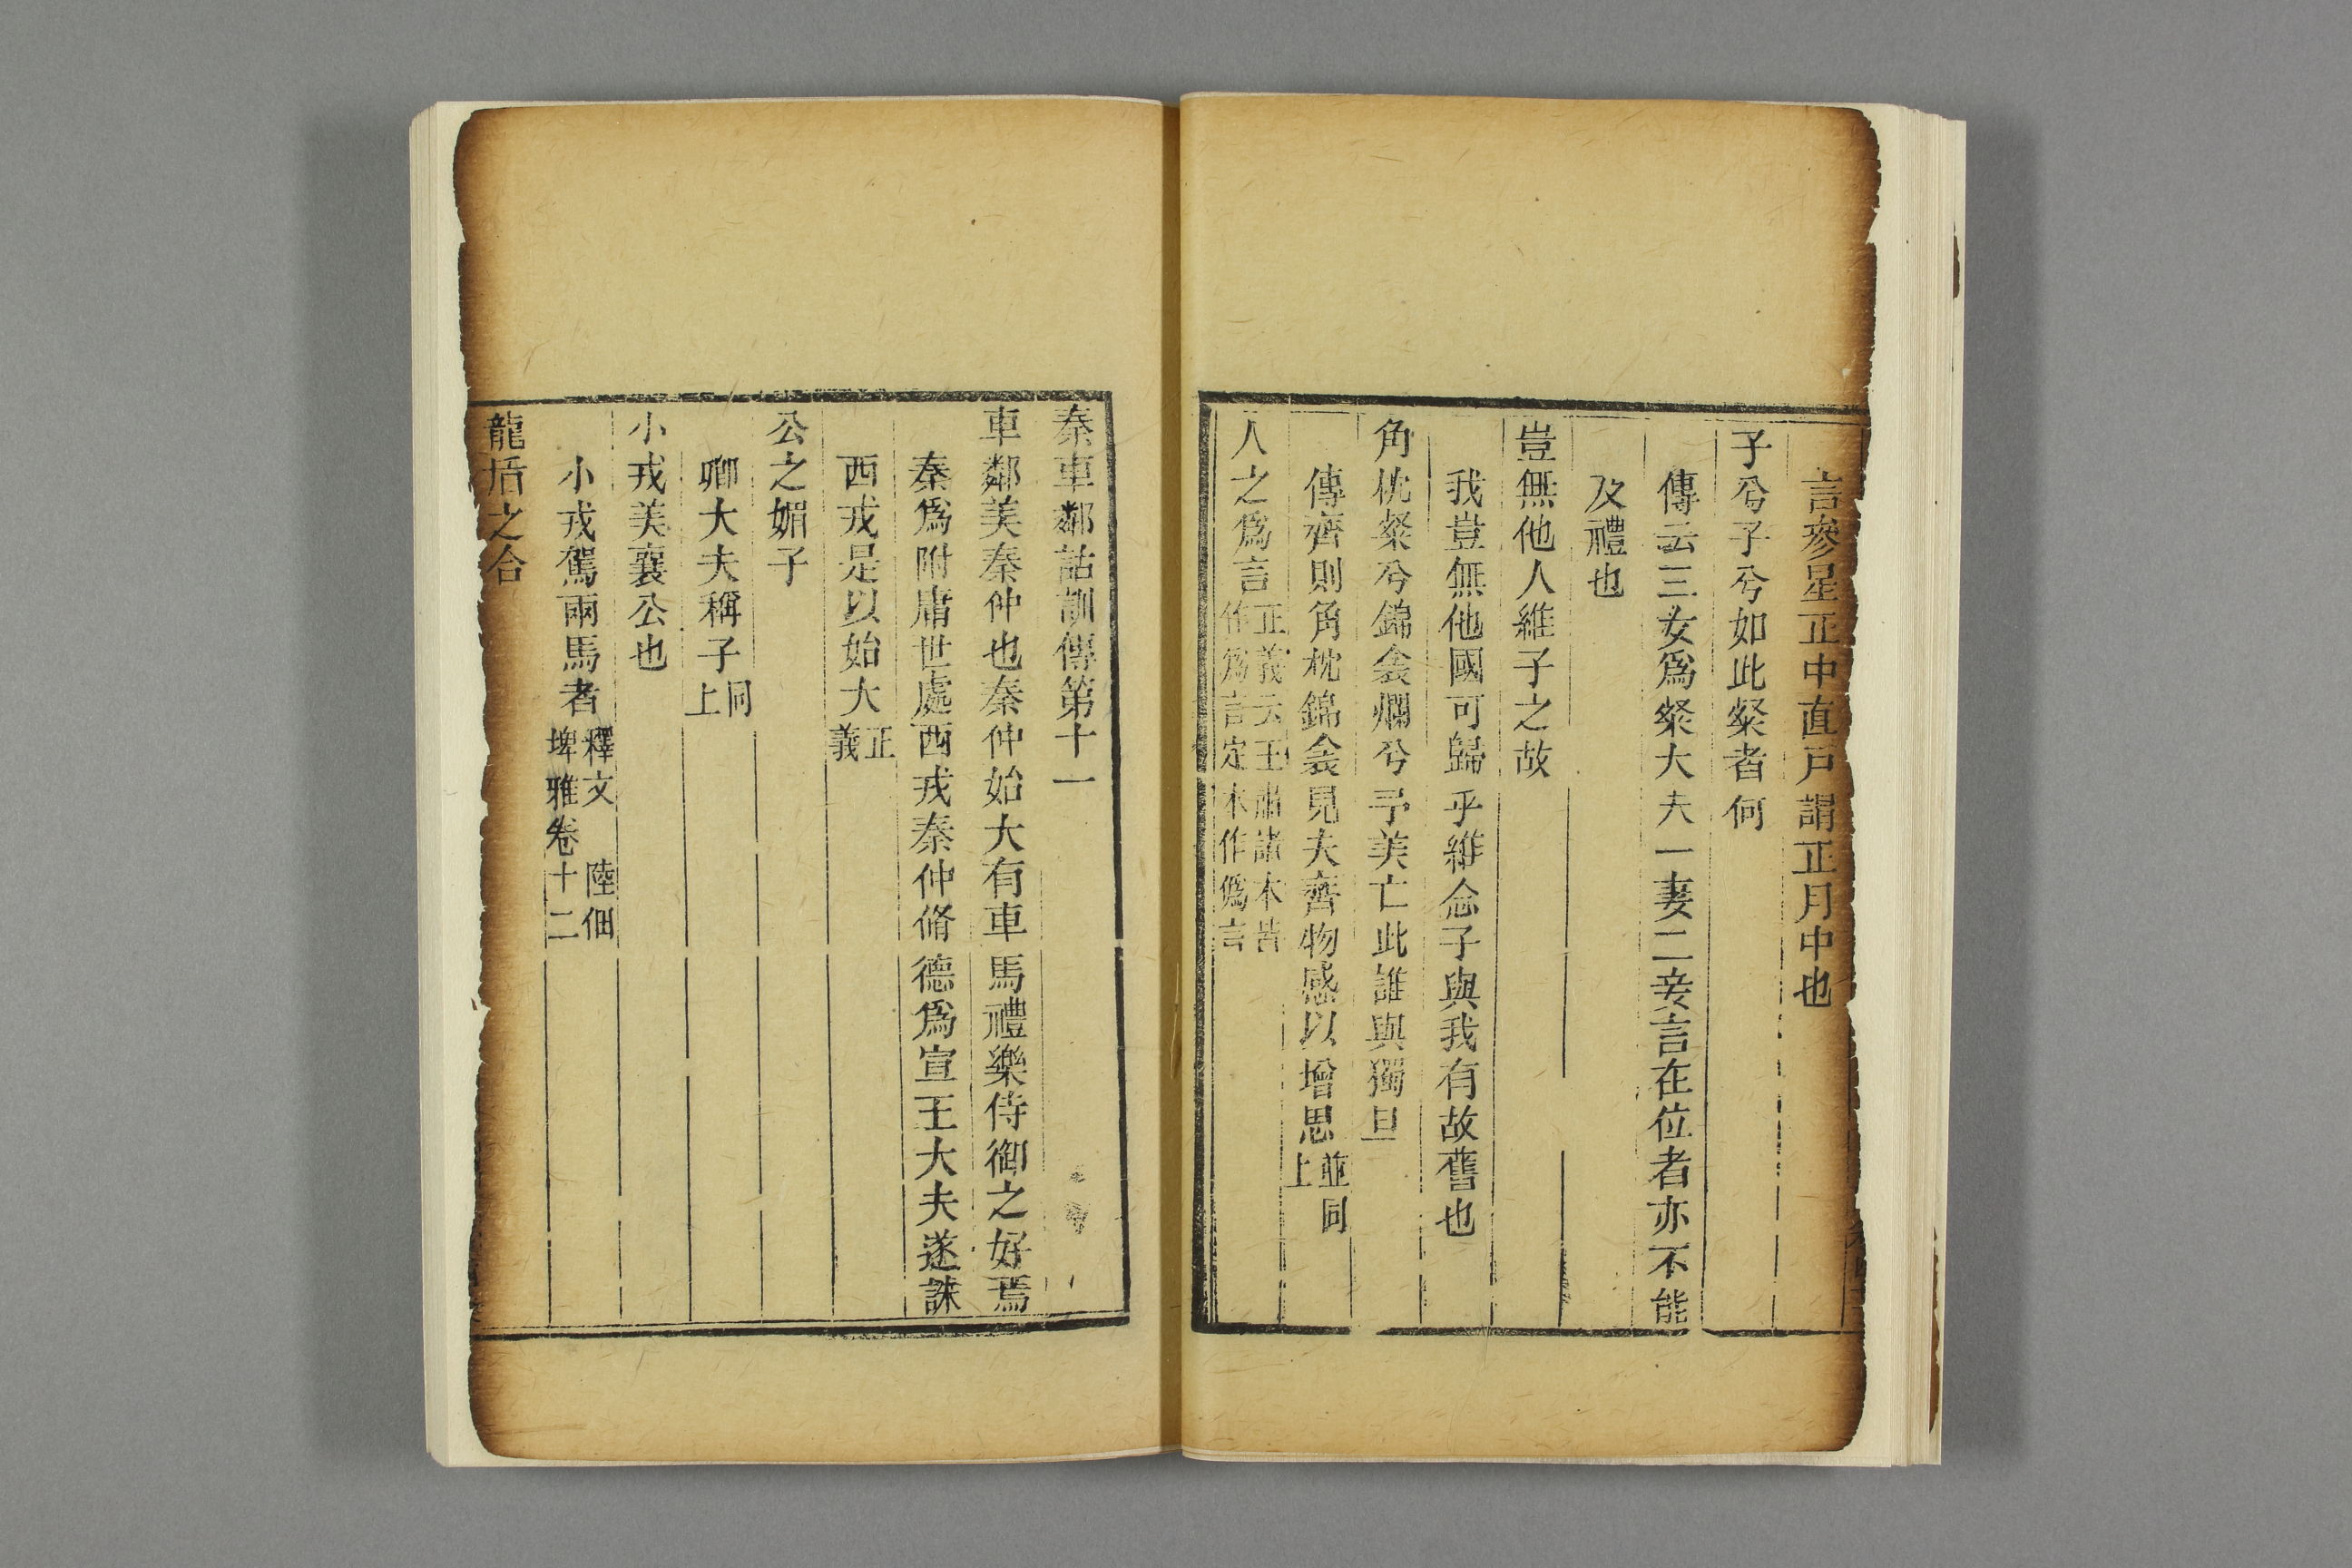 言參星正中直戸謂正月中也
子兮子兮如此粲者何
傳云三女爲粲大夫一妻二妾言在位者亦不能
及禮也
豈無他人維子之故
我豈無他國可歸乎維念子與我有故舊也
角枕粲兮錦衾爛兮予美亡此誰與獨旦
傳齊則角枕錦衾見夫齊物感以增思並同
上
人之爲言正義云王肅諸本皆
作爲言定本作僞言
秦車鄰詁訓傳第十一
車鄰美秦仲也秦仲始大有車馬禮樂侍御之好焉
秦爲附庸世處西戎秦仲脩德爲宣王大夫遂誅
西戎是以始大正
義
公之媚子
卿大夫稱子同
上
小戎美襄公也
小戎駕兩馬者釋文 陸佃
埤雅卷十二
龍盾之合